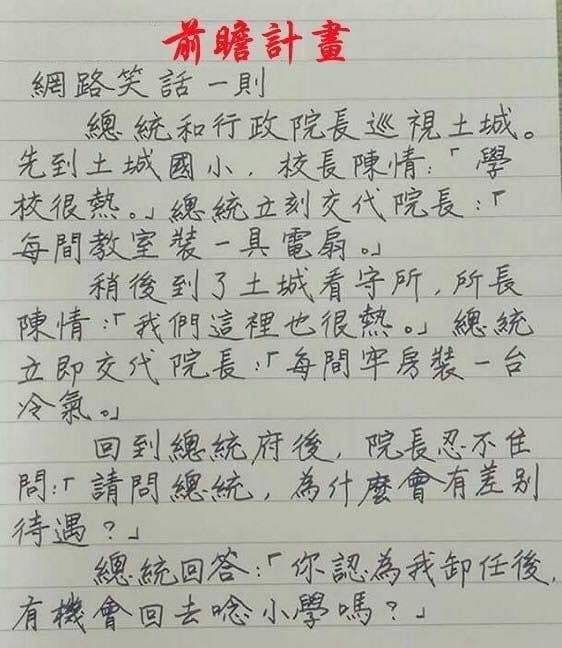 前瞻計畫
網路笑話一則
總統和行政院長巡視土城。
先到土城國小，校長陳情：「學
校很熱。」總統立刻交代院長：「
每間教室裝一具電扇。」
稍後到了土城看守所，所長
陳情：「我們這裡也很熱。」總統
立即交代院長：「每間牢房裝一台
冷氣。」
回到總統府後，院長忍不住
問：「請問總統，為什麼會有差別
待遇？」
總統回答：「你認為我卸任後，
有機會回去唸小學嗎？」